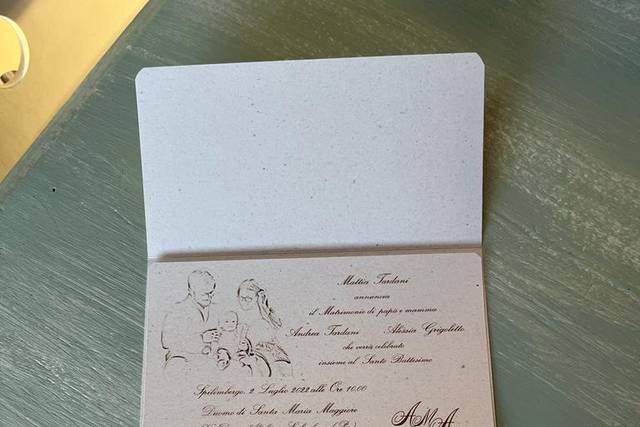 Mattia Tardani
annuncia
il Matrimonio di papà e mamma
Andrea Tardani Alessia Grigoletto
che verrà celebrato
insieme al Santo Battesimo
Spilimbergo, 2 Luglio 2022 alle Ore 10.00
Duomo di Santa Maria Maggiore
AMA